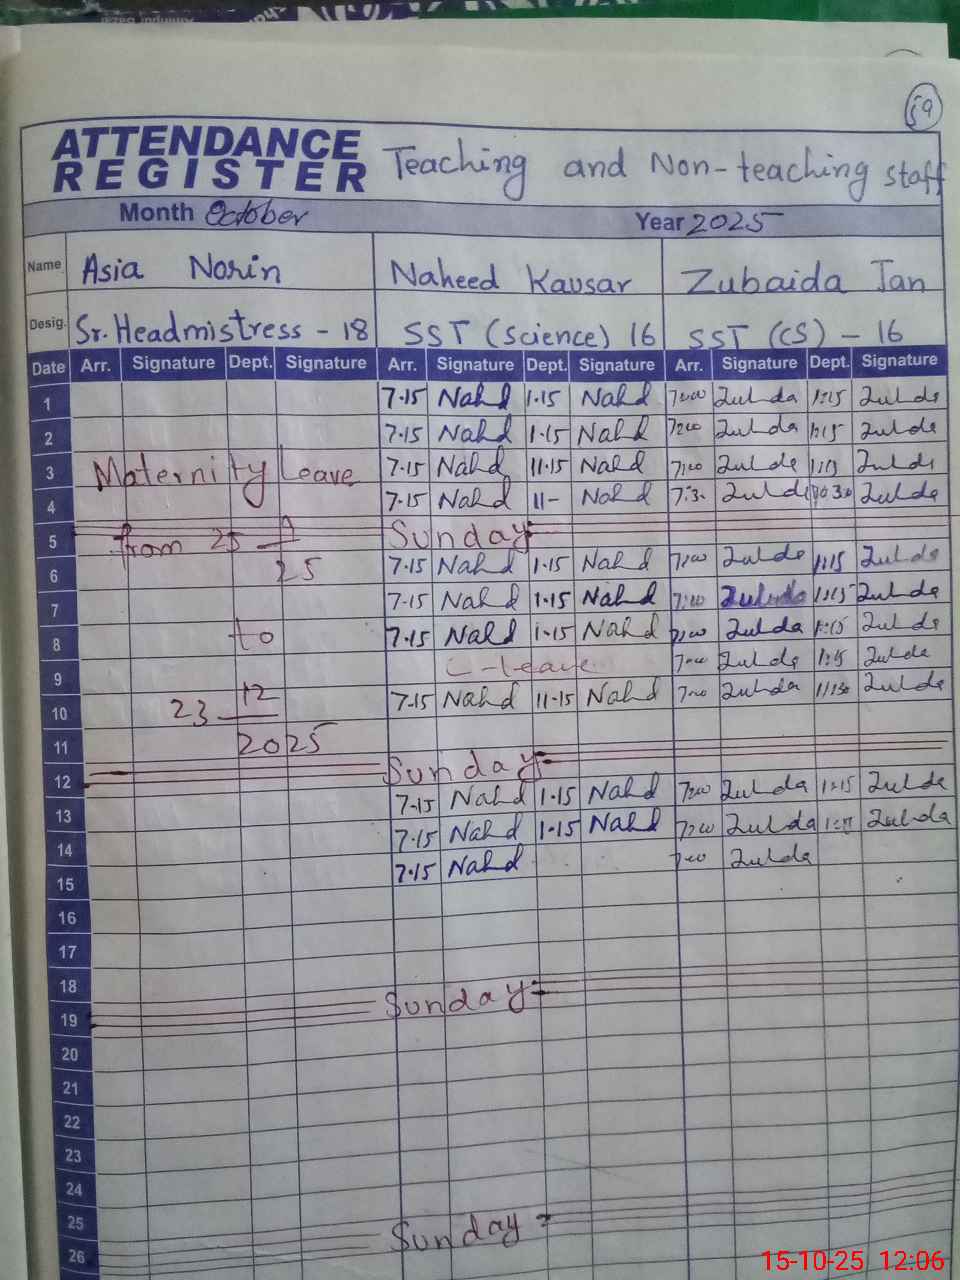 59
ATTENDANCE REGISTER Teaching and Non-teaching staff
Month October Year 2025
Name Asia Norin Naheed Kausar Zubaida Jan
Desig. Sr. Headmistress - 18 SST (Science) 16 SST (CS) - 16
Date Arr. Signature Dept. Signature Arr. Signature Dept. Signature Arr. Signature Dept. Signature
1 7.15 Nahd 1.15 Nahd 7:00 1:15
2 7.15 Nahd 1.15 Nahd 7:00 1:15
3 Maternity Leave 7.15 Nahd 11.15 Nahd 7:00
4 7.15 Nahd 11- Nahd 7:30
5 from 25 9 Sunday
6 25 7.15 Nahd 1.15 Nahd 7:00 1:15
7 7.15 Nahd 1.15 Nahd 7:00 1:15
8 to 7.15 Nahd 1.15 Nahd 7:00 1:15
9 C-leave 7:00 1:15
10 23 12 7.15 Nahd 11.15 Nahd 7:00
11 2025
12 Sunday
13 7.15 Nahd 1.15 Nahd 7:00 1:15
14 7.15 Nahd 1.15 Nahd 7:00
15 7.15 Nahd 7:00
16
17
18
19 Sunday
20
21
22
23
24
25
26 Sunday
15-10-25 12:06